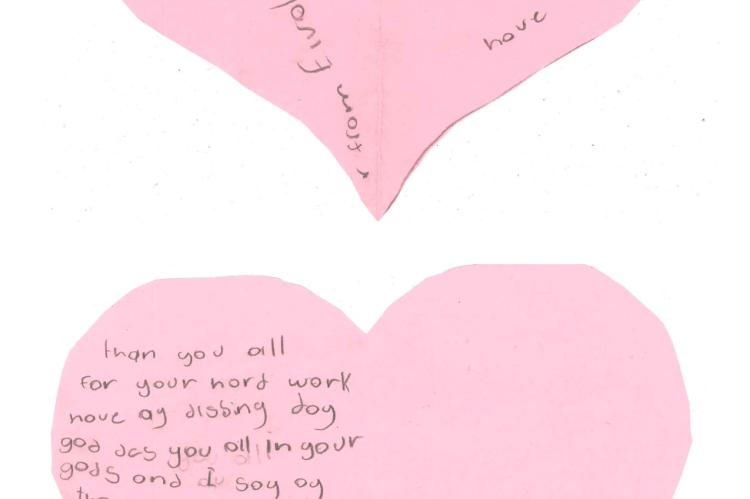 have
from
than you all
for your hord work
have ay dissing doy
god dcs you all in your
gods and I soy oy